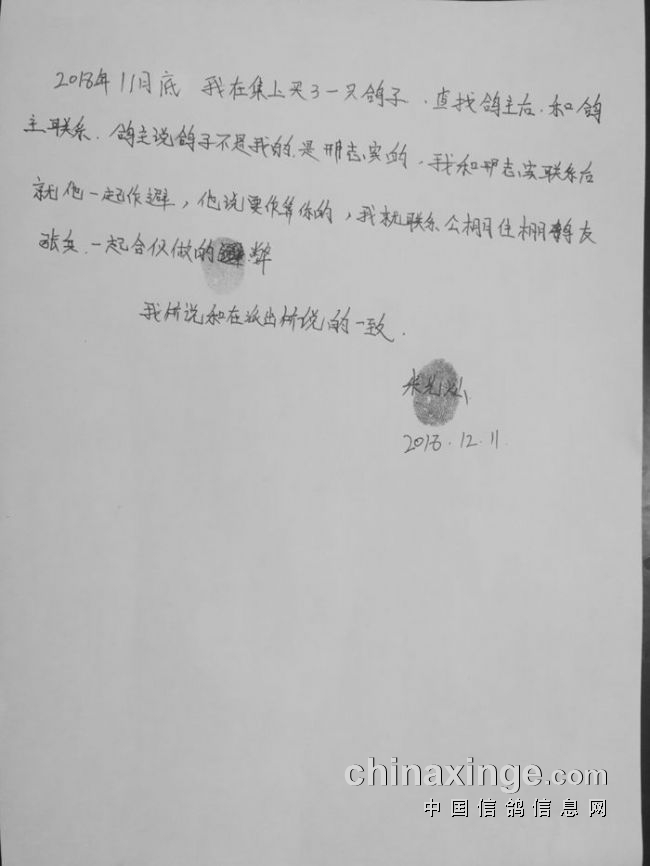 2018年11月底 我在集上买了一只鸽子.查找鸽主后.和鸽
主联系.鸽主说鸽子不是我的.是邢志宾的.我和邢志宾联系后
就他一起作避,他说要作算你的,我就联系公棚住棚鸽友
张兵.一起合仪做的 弊
我所说和在派出所说的一致.
2018.12.11.
chinaxinge.com
中国信鸽信息网